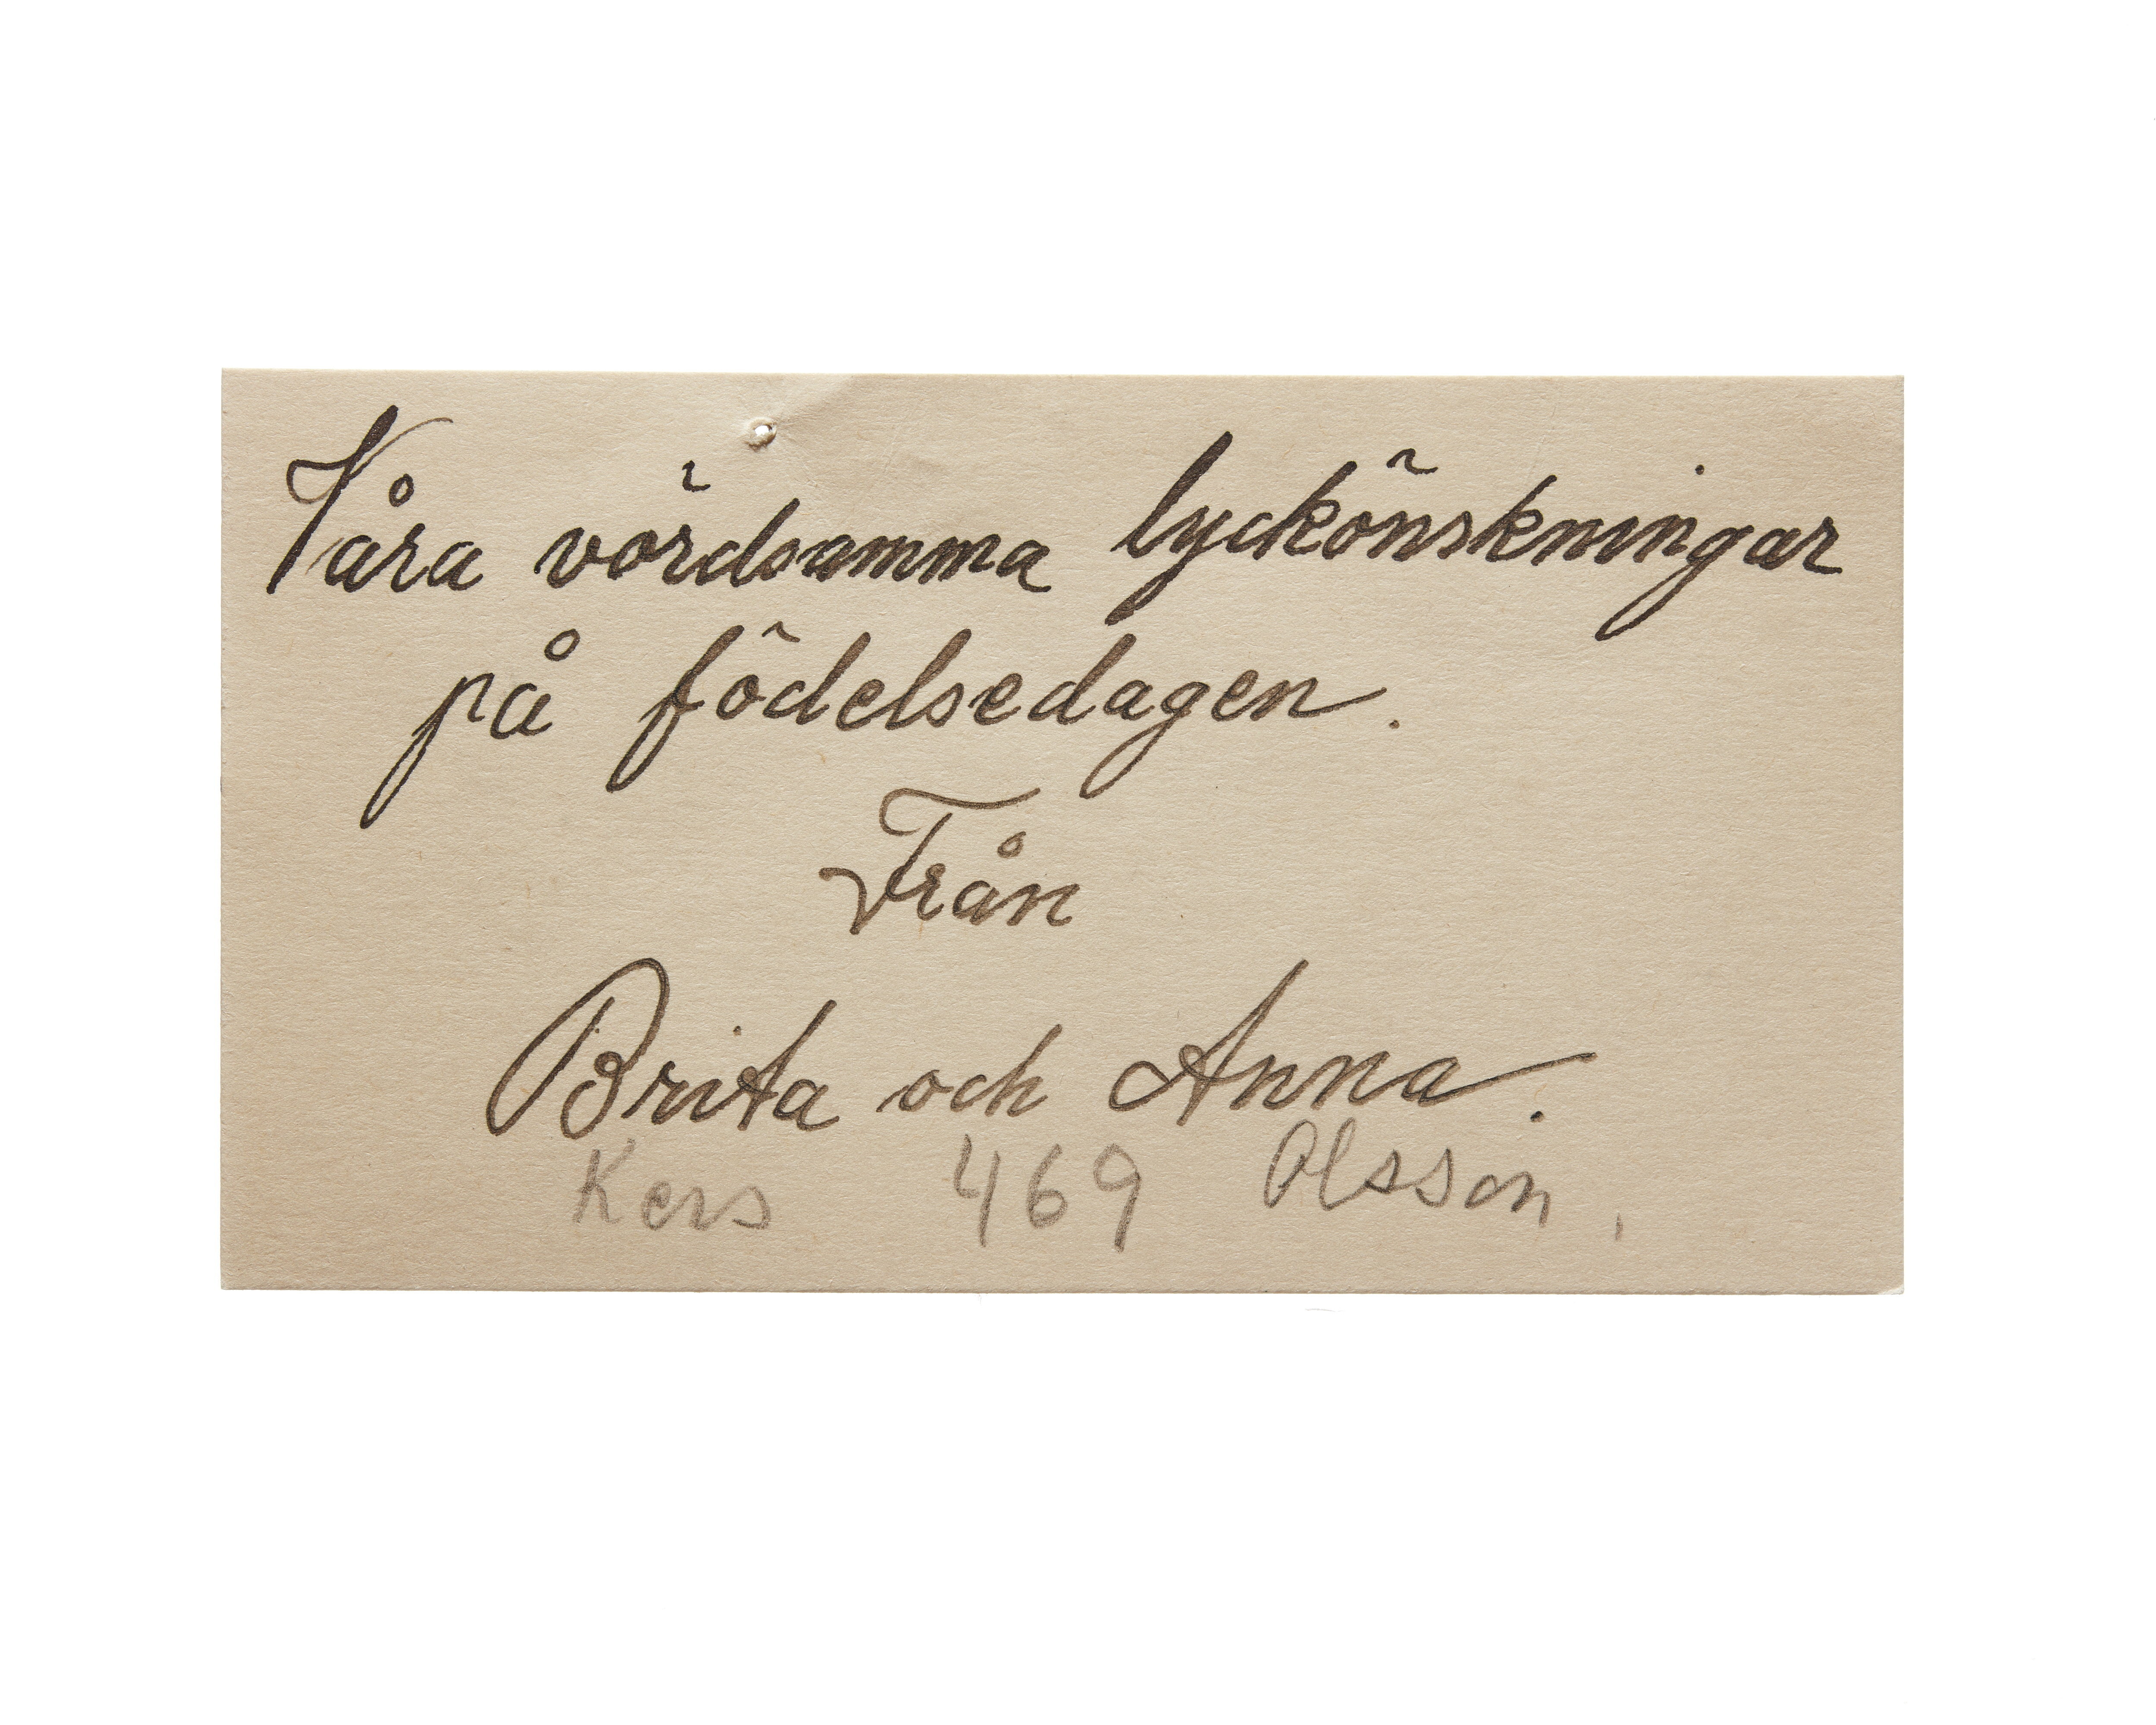 Våra vördsamma lyckönskningar
på födelsedagen.
Från
Brita och Anna.
Kers 469 Olsson.